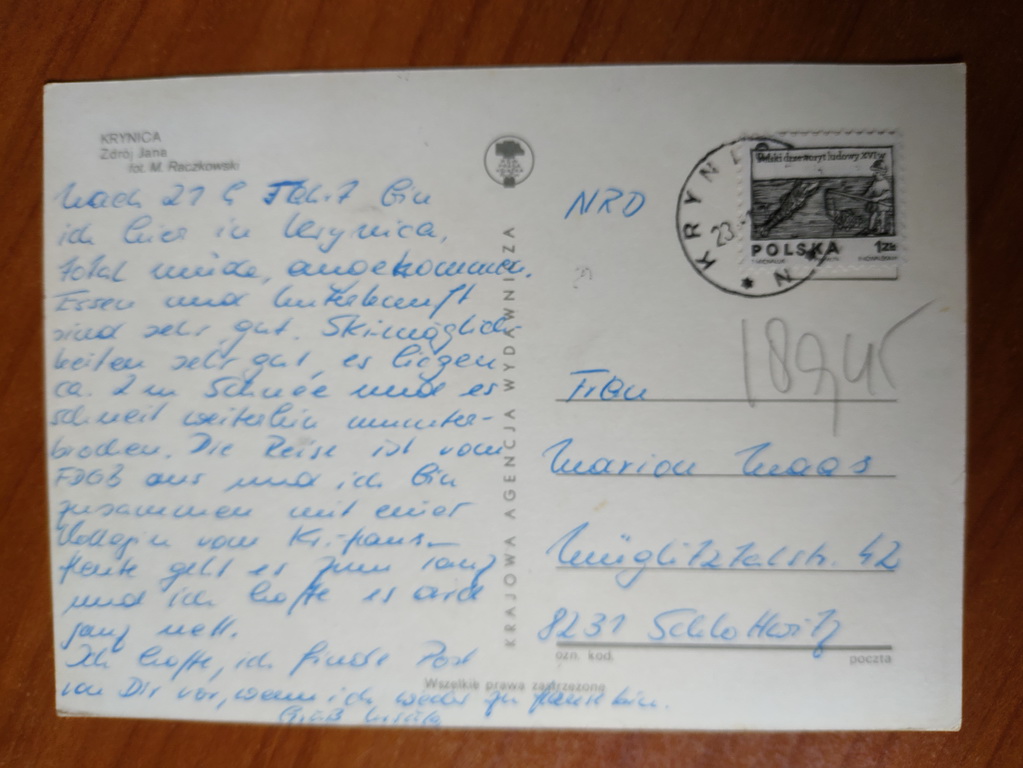 KRYNICA
Zdrój Jana
fot. M. Raczkowski
Nach 21 h Fahrt bin
ich hier in Krynica,
total müde, angekommen.
Essen und Unterkunft
sind sehr gut. Skimöglich-
keiten sehr gut, es liegen
ca. 2 m Schnee und es
schneit weiterhin ununter-
brochen. Die Reise ist vom
FDGB aus und ich bin
zusammen mit einer
Kollegin vom
Heute geht es zum Tanz
und ich hoffe es wird
ganz nett.
Ich hoffe, ich finde Post
von Dir vor, wenn ich wieder zu Hause bin.
Gruß
KRAJOWA AGENCJA WYDAWNICZA
NRD
KRYNI
23
N
Polski drzeworyt ludowy XVI w
POLSKA 1 ZŁ
Frau
Marion Maas
Müglitztalstr. 42
8231 Schlottwitz
ozn. kod. poczta
Wszelkie prawa zastrzeżone